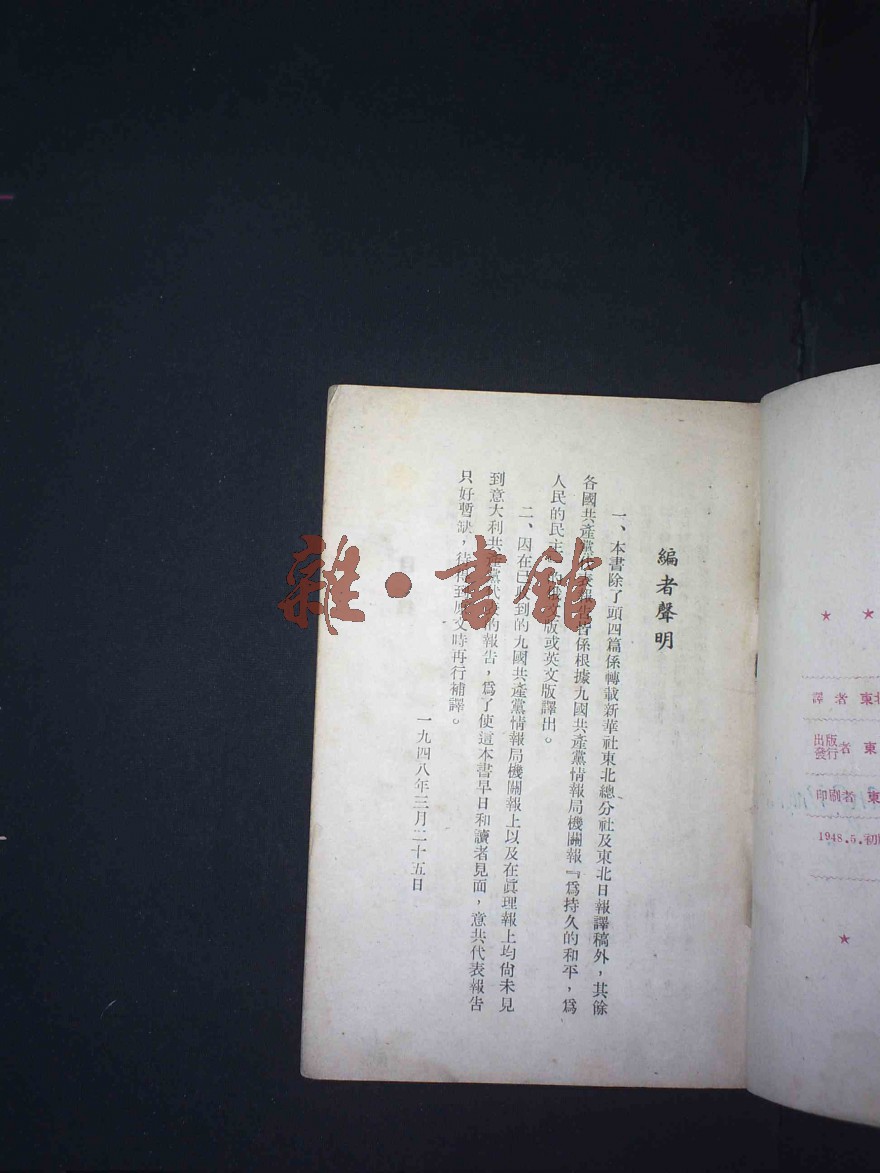 編者聲明
一、本書除了頭四篇係轉載新華社東北總分社及東北日報譯稿外，其餘
各國共產黨代表報告皆係根據九國共產黨情報局機關報『爲持久的和平，爲
人民的民主』的俄文版或英文版譯出。
二、因在已收到的九國共產黨情報局機關報上以及在眞理報上均尙未見
到意大利共產黨代表的報告，爲了使這本書早日和讀者見面，意共代表報告
只好暫缺，待得到原文時再行補譯。
一九四八年三月二十五日
雜·書館
★ ★
譯者 東北
出版
發行者 東
印刷者 東
1948.5.初
★